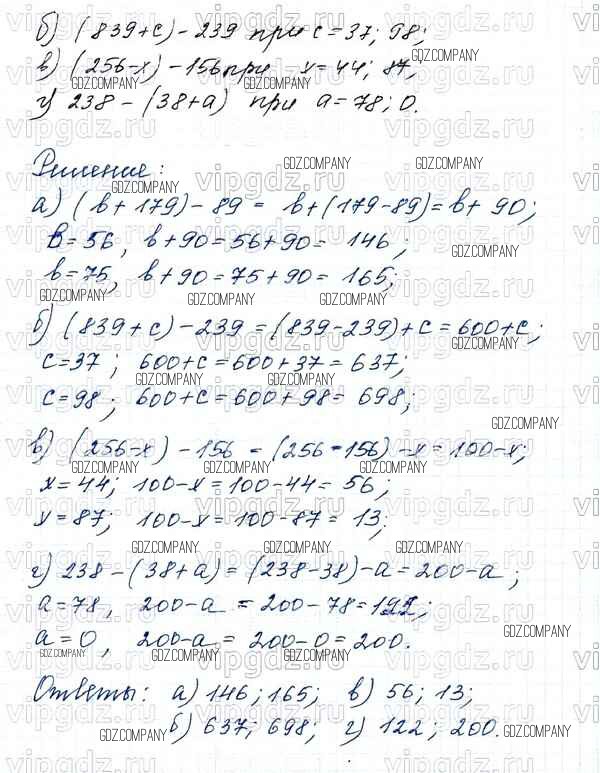 б) (839+c) - 239 при c = 37; 98;
в) (256-x) - 156 при x = 44; 87;
г) 238 - (38+a) при a = 78; 0.
Решение:
а) (b+179) - 89 = b+(179-89) = b+90;
b = 56, b+90 = 56+90 = 146;
b = 75, b+90 = 75+90 = 165;
б) (839+c) - 239 = (839-239)+c = 600+c;
c = 37; 600+c = 600+37 = 637;
c = 98; 600+c = 600+98 = 698;
в) (256-x) - 156 = (256-156) - x = 100-x;
x = 44; 100-x = 100-44 = 56;
x = 87; 100-x = 100-87 = 13;
г) 238 - (38+a) = (238-38) - a = 200-a;
a = 78, 200-a = 200-78 = 122;
a = 0, 200-a = 200-0 = 200.
Ответы: а) 146; 165; в) 56; 13;
б) 637; 698; г) 122; 200.